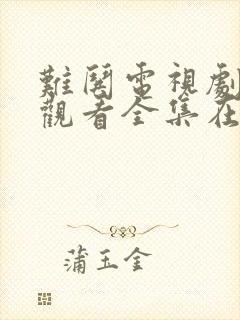 難鬨電視劇
觀看全集在
蒲玉金